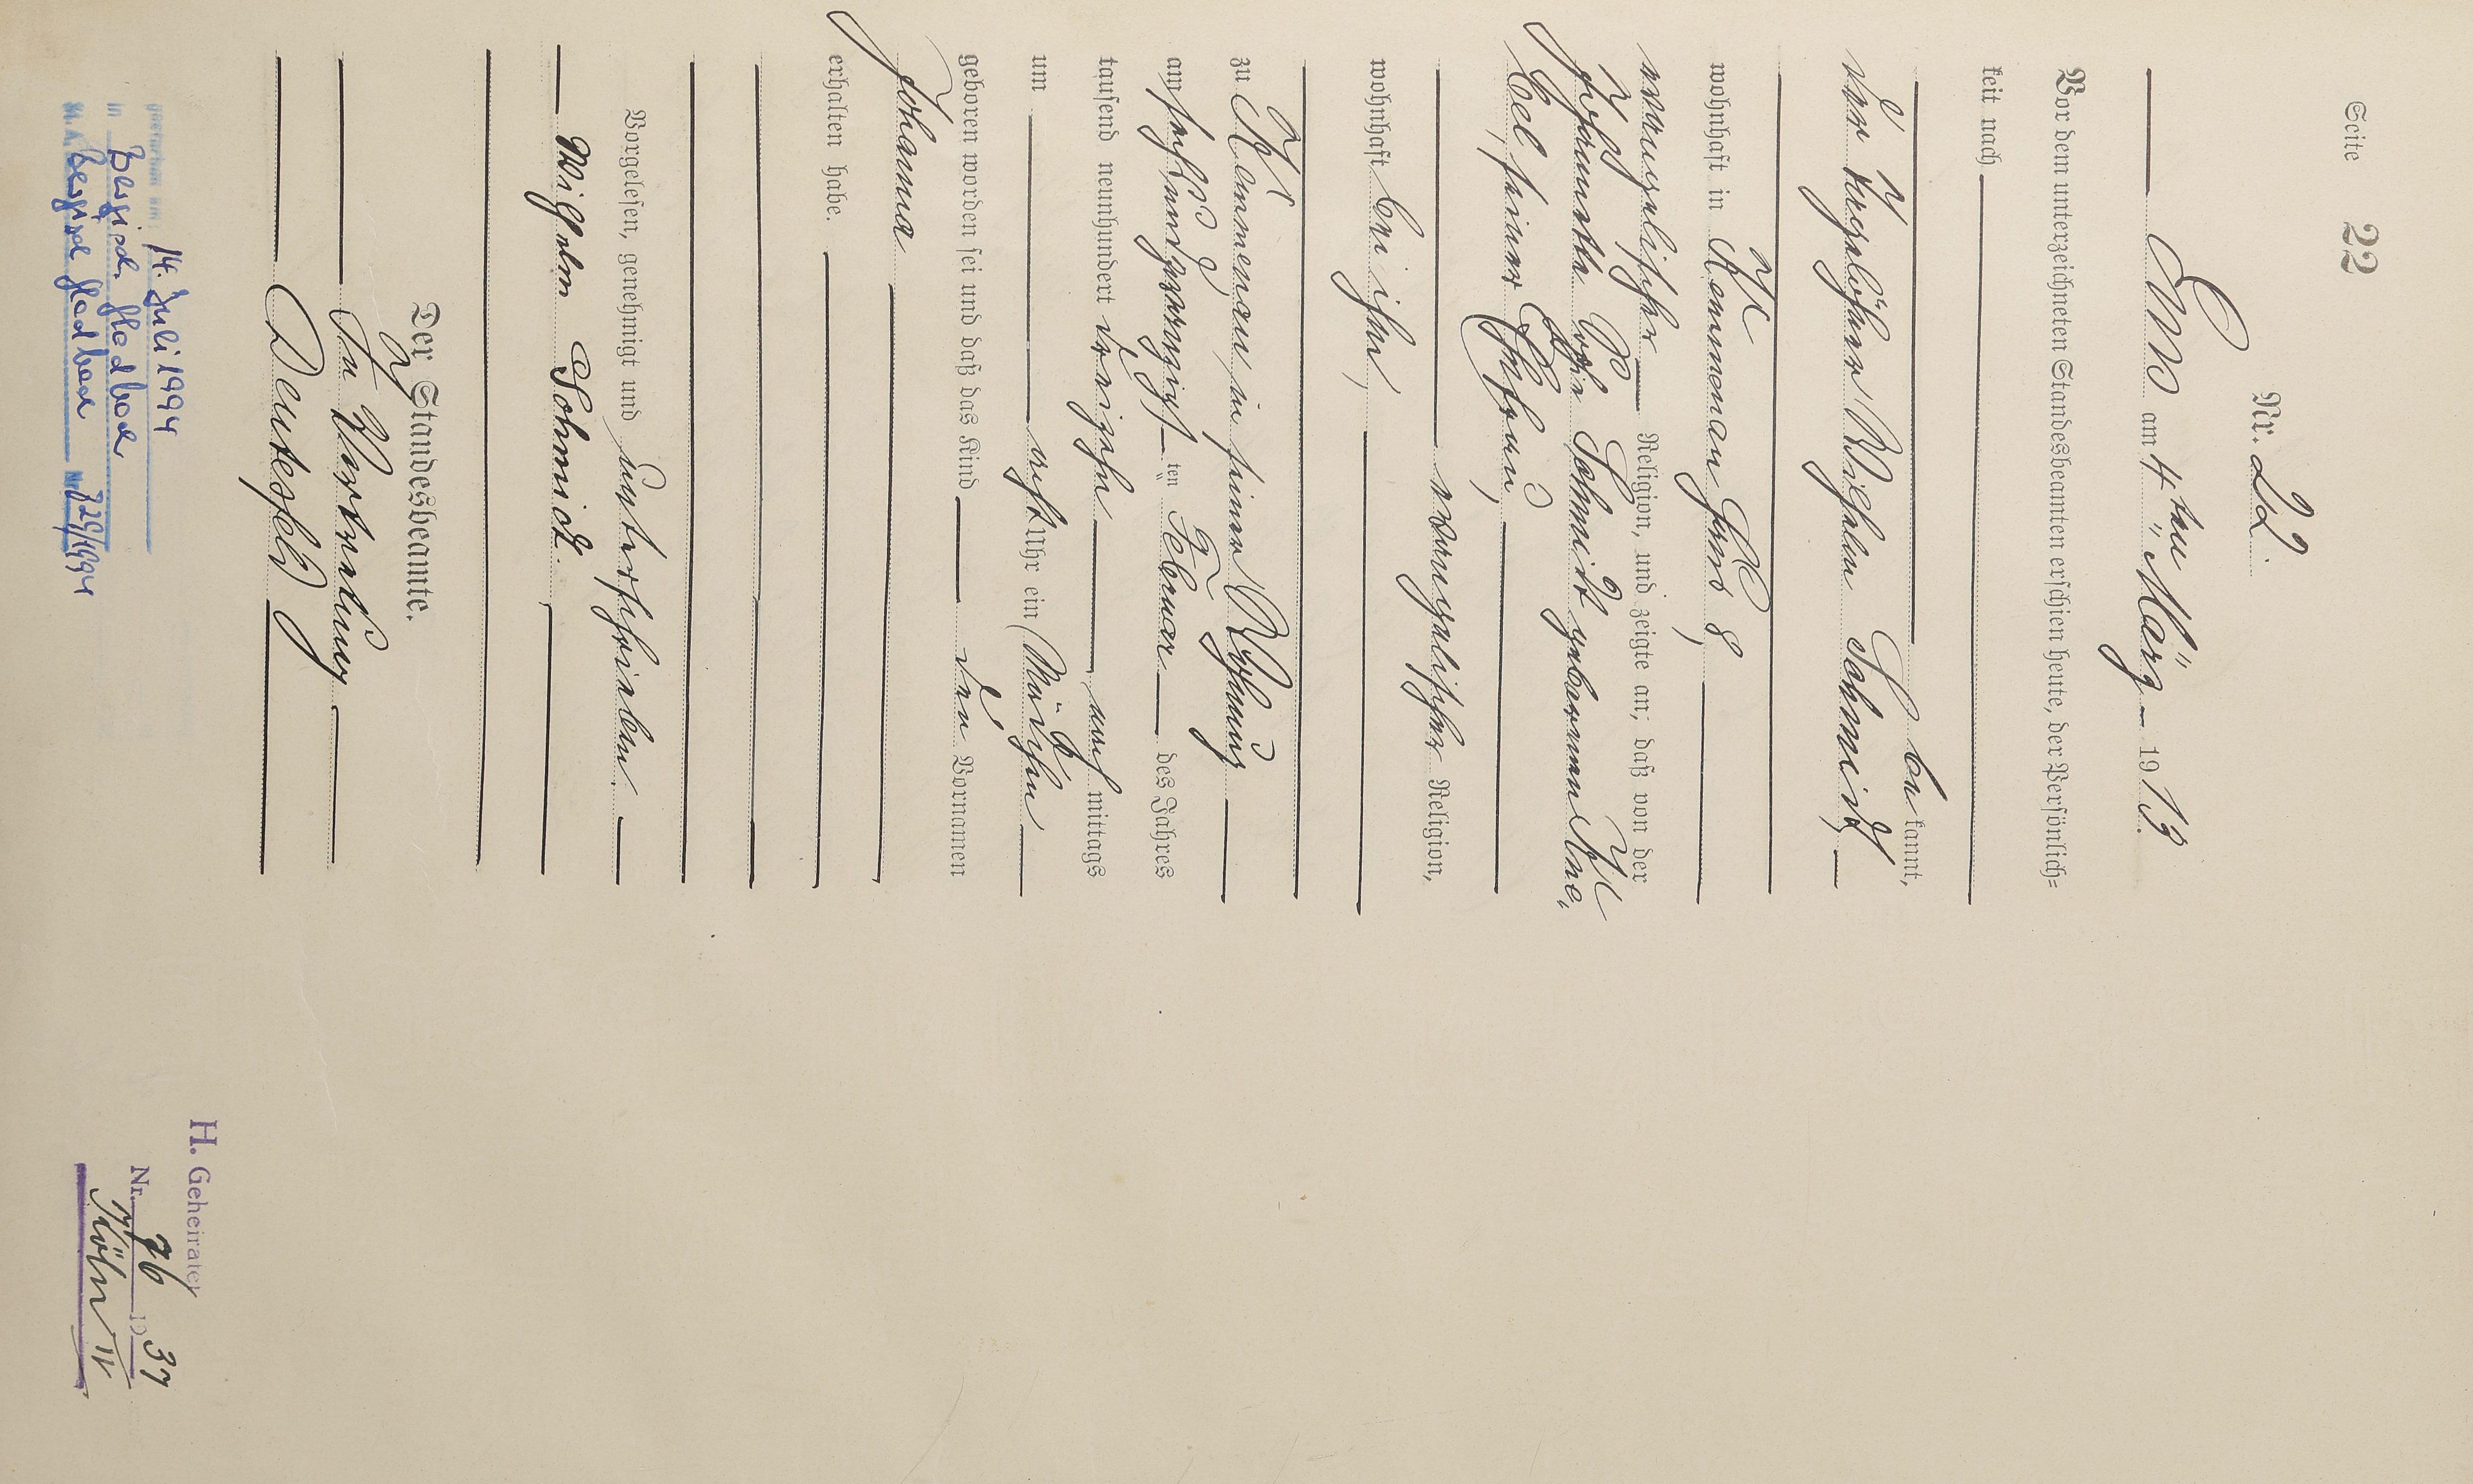 Seite 22
Nr. 22.
Ems am 4ten März 1913.
Vor dem unterzeichneten Standesbeamten erschien heute, der Persönlich=
keit nach
be kannt,
der Tagelöhner Wilhelm Schmidt,
wohnhaft in Kemmenau Haus 8,
evangelischer Religion, und zeigte an, daß von der
Johannette Schmidt geborenen
seiner Ehefrau,
evangelischer Religion,
wohnhaft bei ihm,
zu Kemmenau in seiner Wohnung
am sechsundzwanzigsten Februar des Jahres
tausend neunhundert dreizehn nach mittags
um acht Uhr ein Mädchen
geboren worden sei und daß das Kind den Vornamen
Johanna
erhalten habe.
Vorgelesen, genehmigt und unterschrieben
Wilhelm Schmidt.
Der Standesbeamte.
In Vertretung
gestorben am 14. Juli 1994
in Bergisch Gladbach
St. A. Bergisch Gladbach Nr. 729/1994
H. Geheiratet
Nr. 96 1937
Köln IV